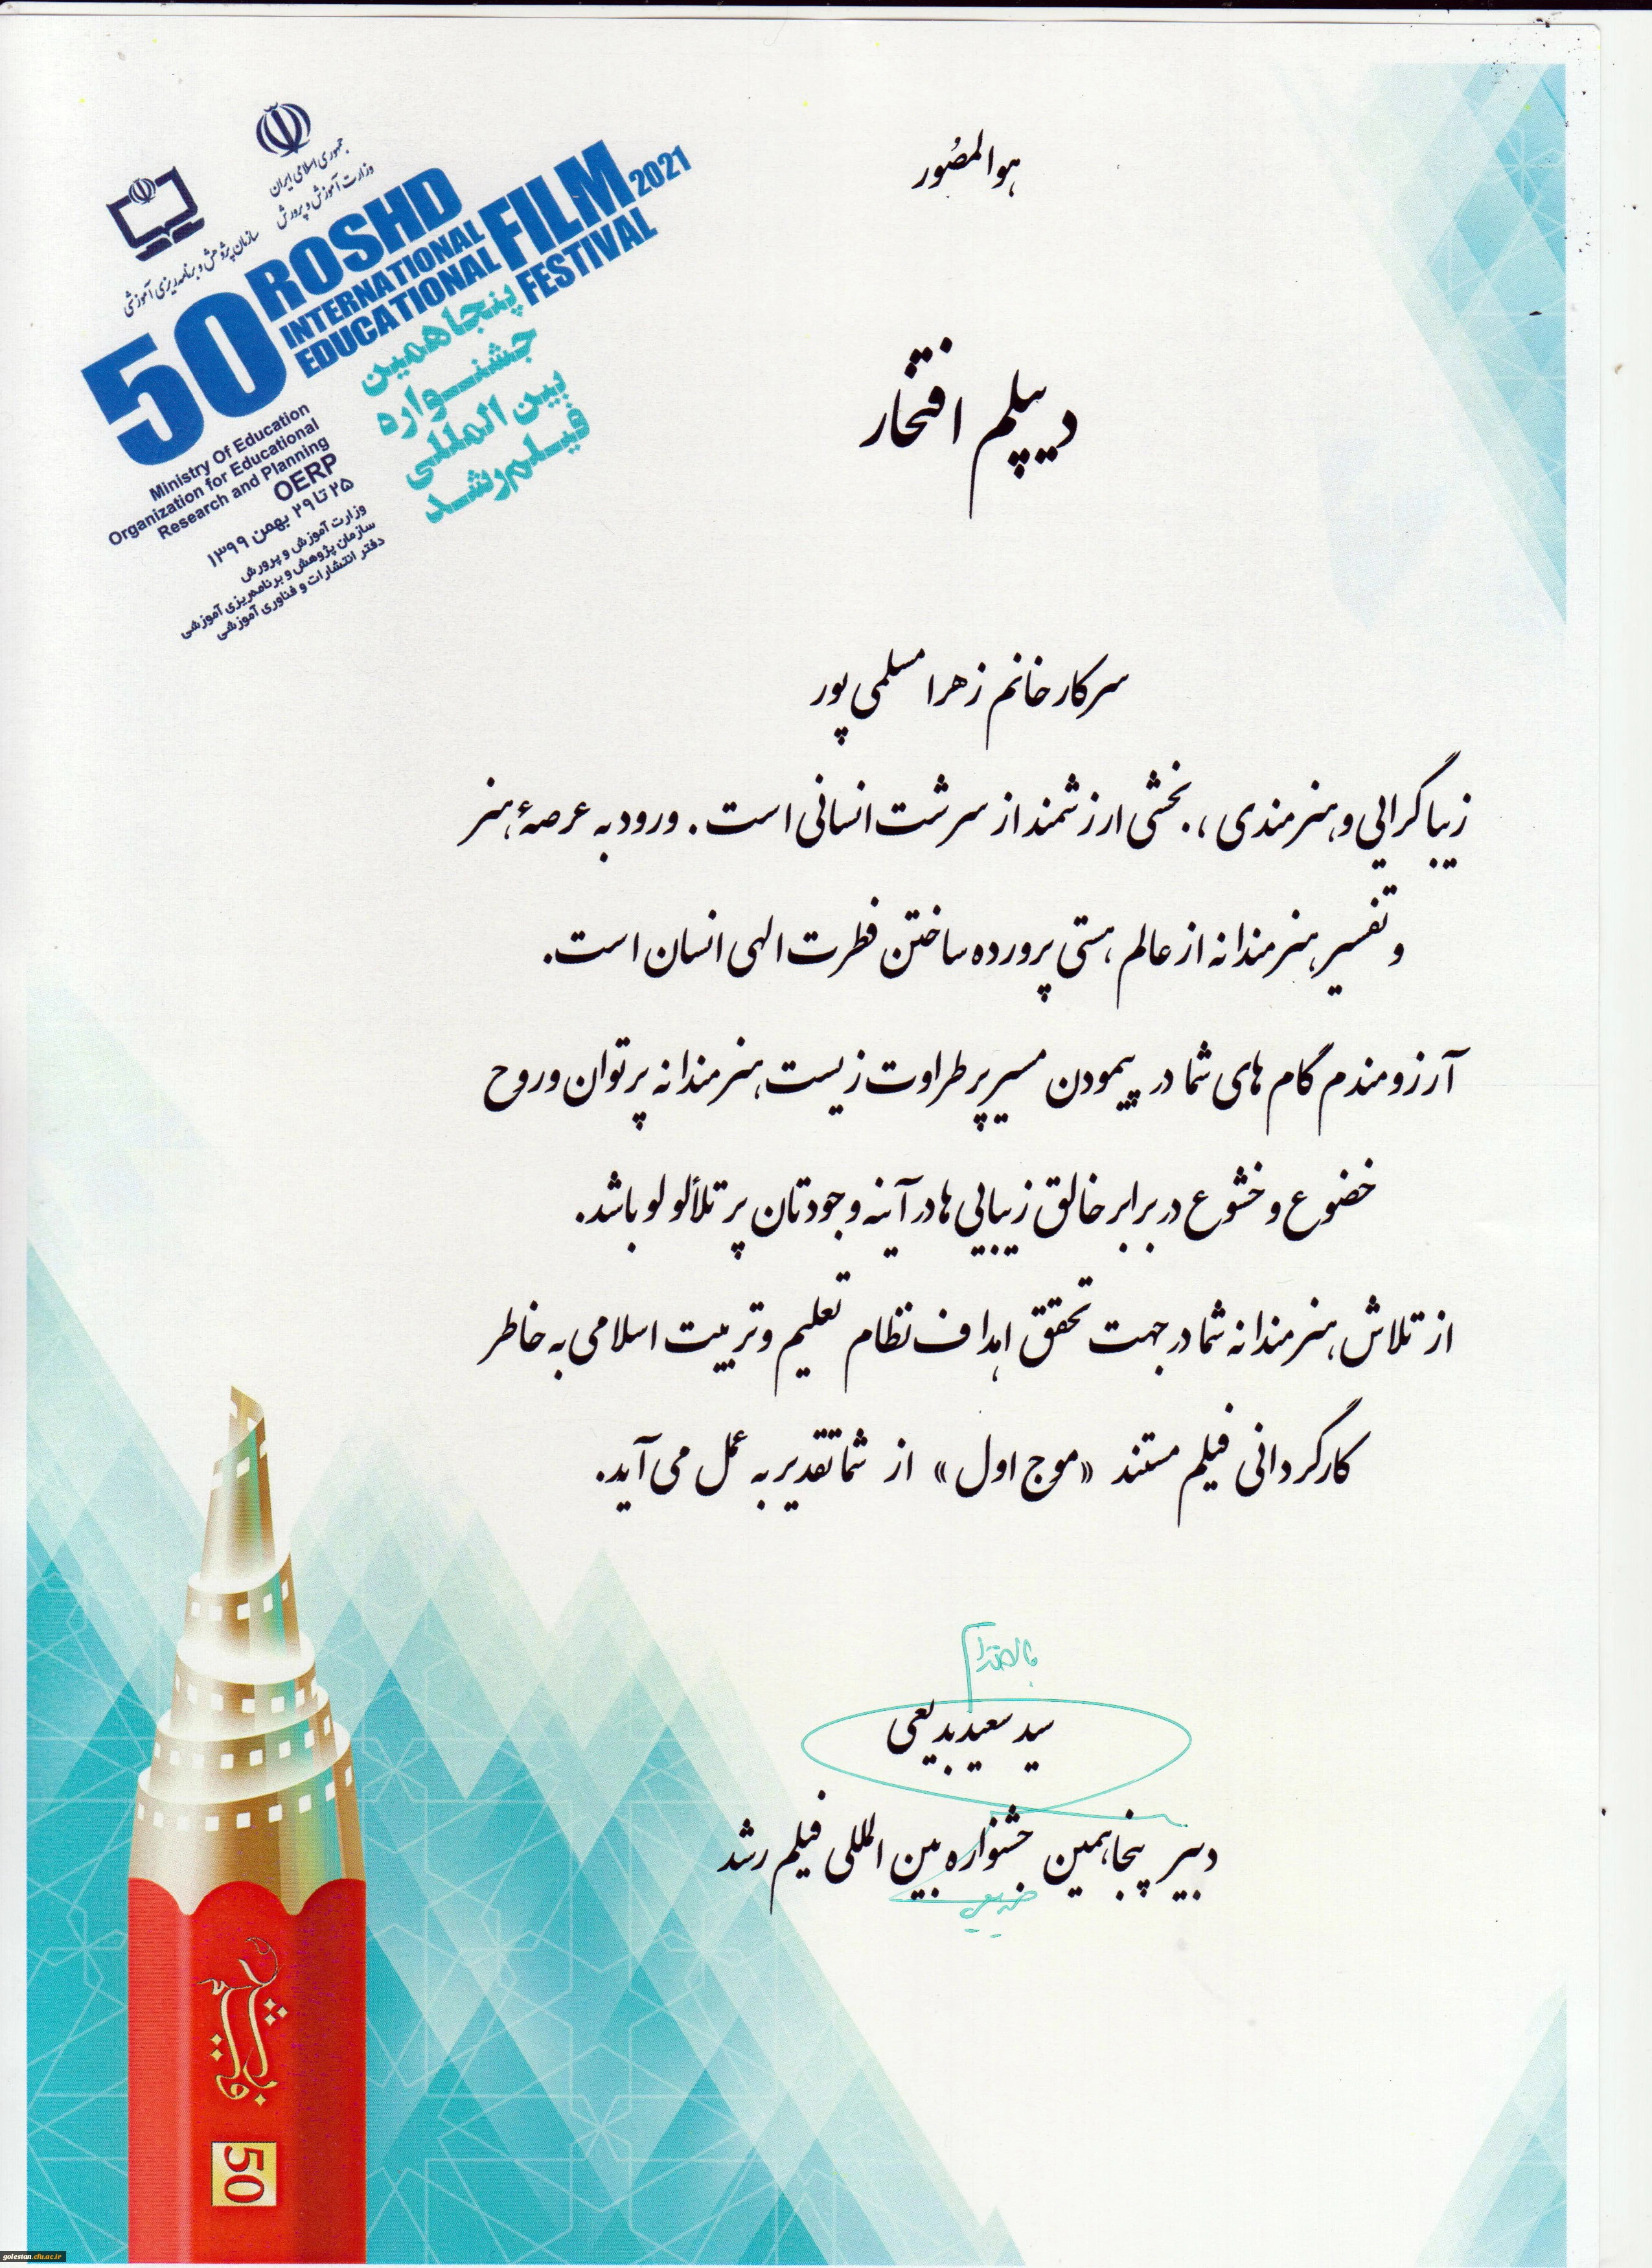 هوالمصُور
جمهوری اسلامی ایران
وزارت آموزش و پرورش
سازمان پژوهش و برنامه ریزی آموزشی
50 ROSHD
INTERNATIONAL
EDUCATIONAL
FILM 2021
FESTIVAL
پنجاهمین
جشنواره
بین المللی
فیلم رشد
Ministry Of Education
Organization for Educational
Research and Planning
OERP
۲۵ تا ۲۹ بهمن ۱۳۹۹
وزارت آموزش و پرورش
سازمان پژوهش و برنامه‌ریزی آموزشی
دفتر انتشارات و فناوری آموزشی
دیپلم افتخار
سرکار خانم زهرا مسلمی پور
زیباگرایی و هنرمندی ، بخشی ارزشمند از سرشت انسانی است . ورود به عرصهٔ هنر
و تفسیر هنرمندانه از عالم هستی پرورده ساختن فطرت الهی انسان است.
آرزومندم گام های شما در پیمودن مسیر پر طراوت زیست هنرمندانه پر توان و روح
خضوع و خشوع در برابر خالق زیبایی ها در آینه وجودتان پر تلألو لو باشد.
از تلاش هنرمندانه شما در جهت تحقق اهداف نظام تعلیم و تربیت اسلامی به خاطر
کارگردانی فیلم مستند «موج اول» از شما تقدیر به عمل می آید.
سید سعید بدیعی
دبیر پنجاهمین جشنواره بین المللی فیلم رشد
50
golestan.cfu.ac.ir